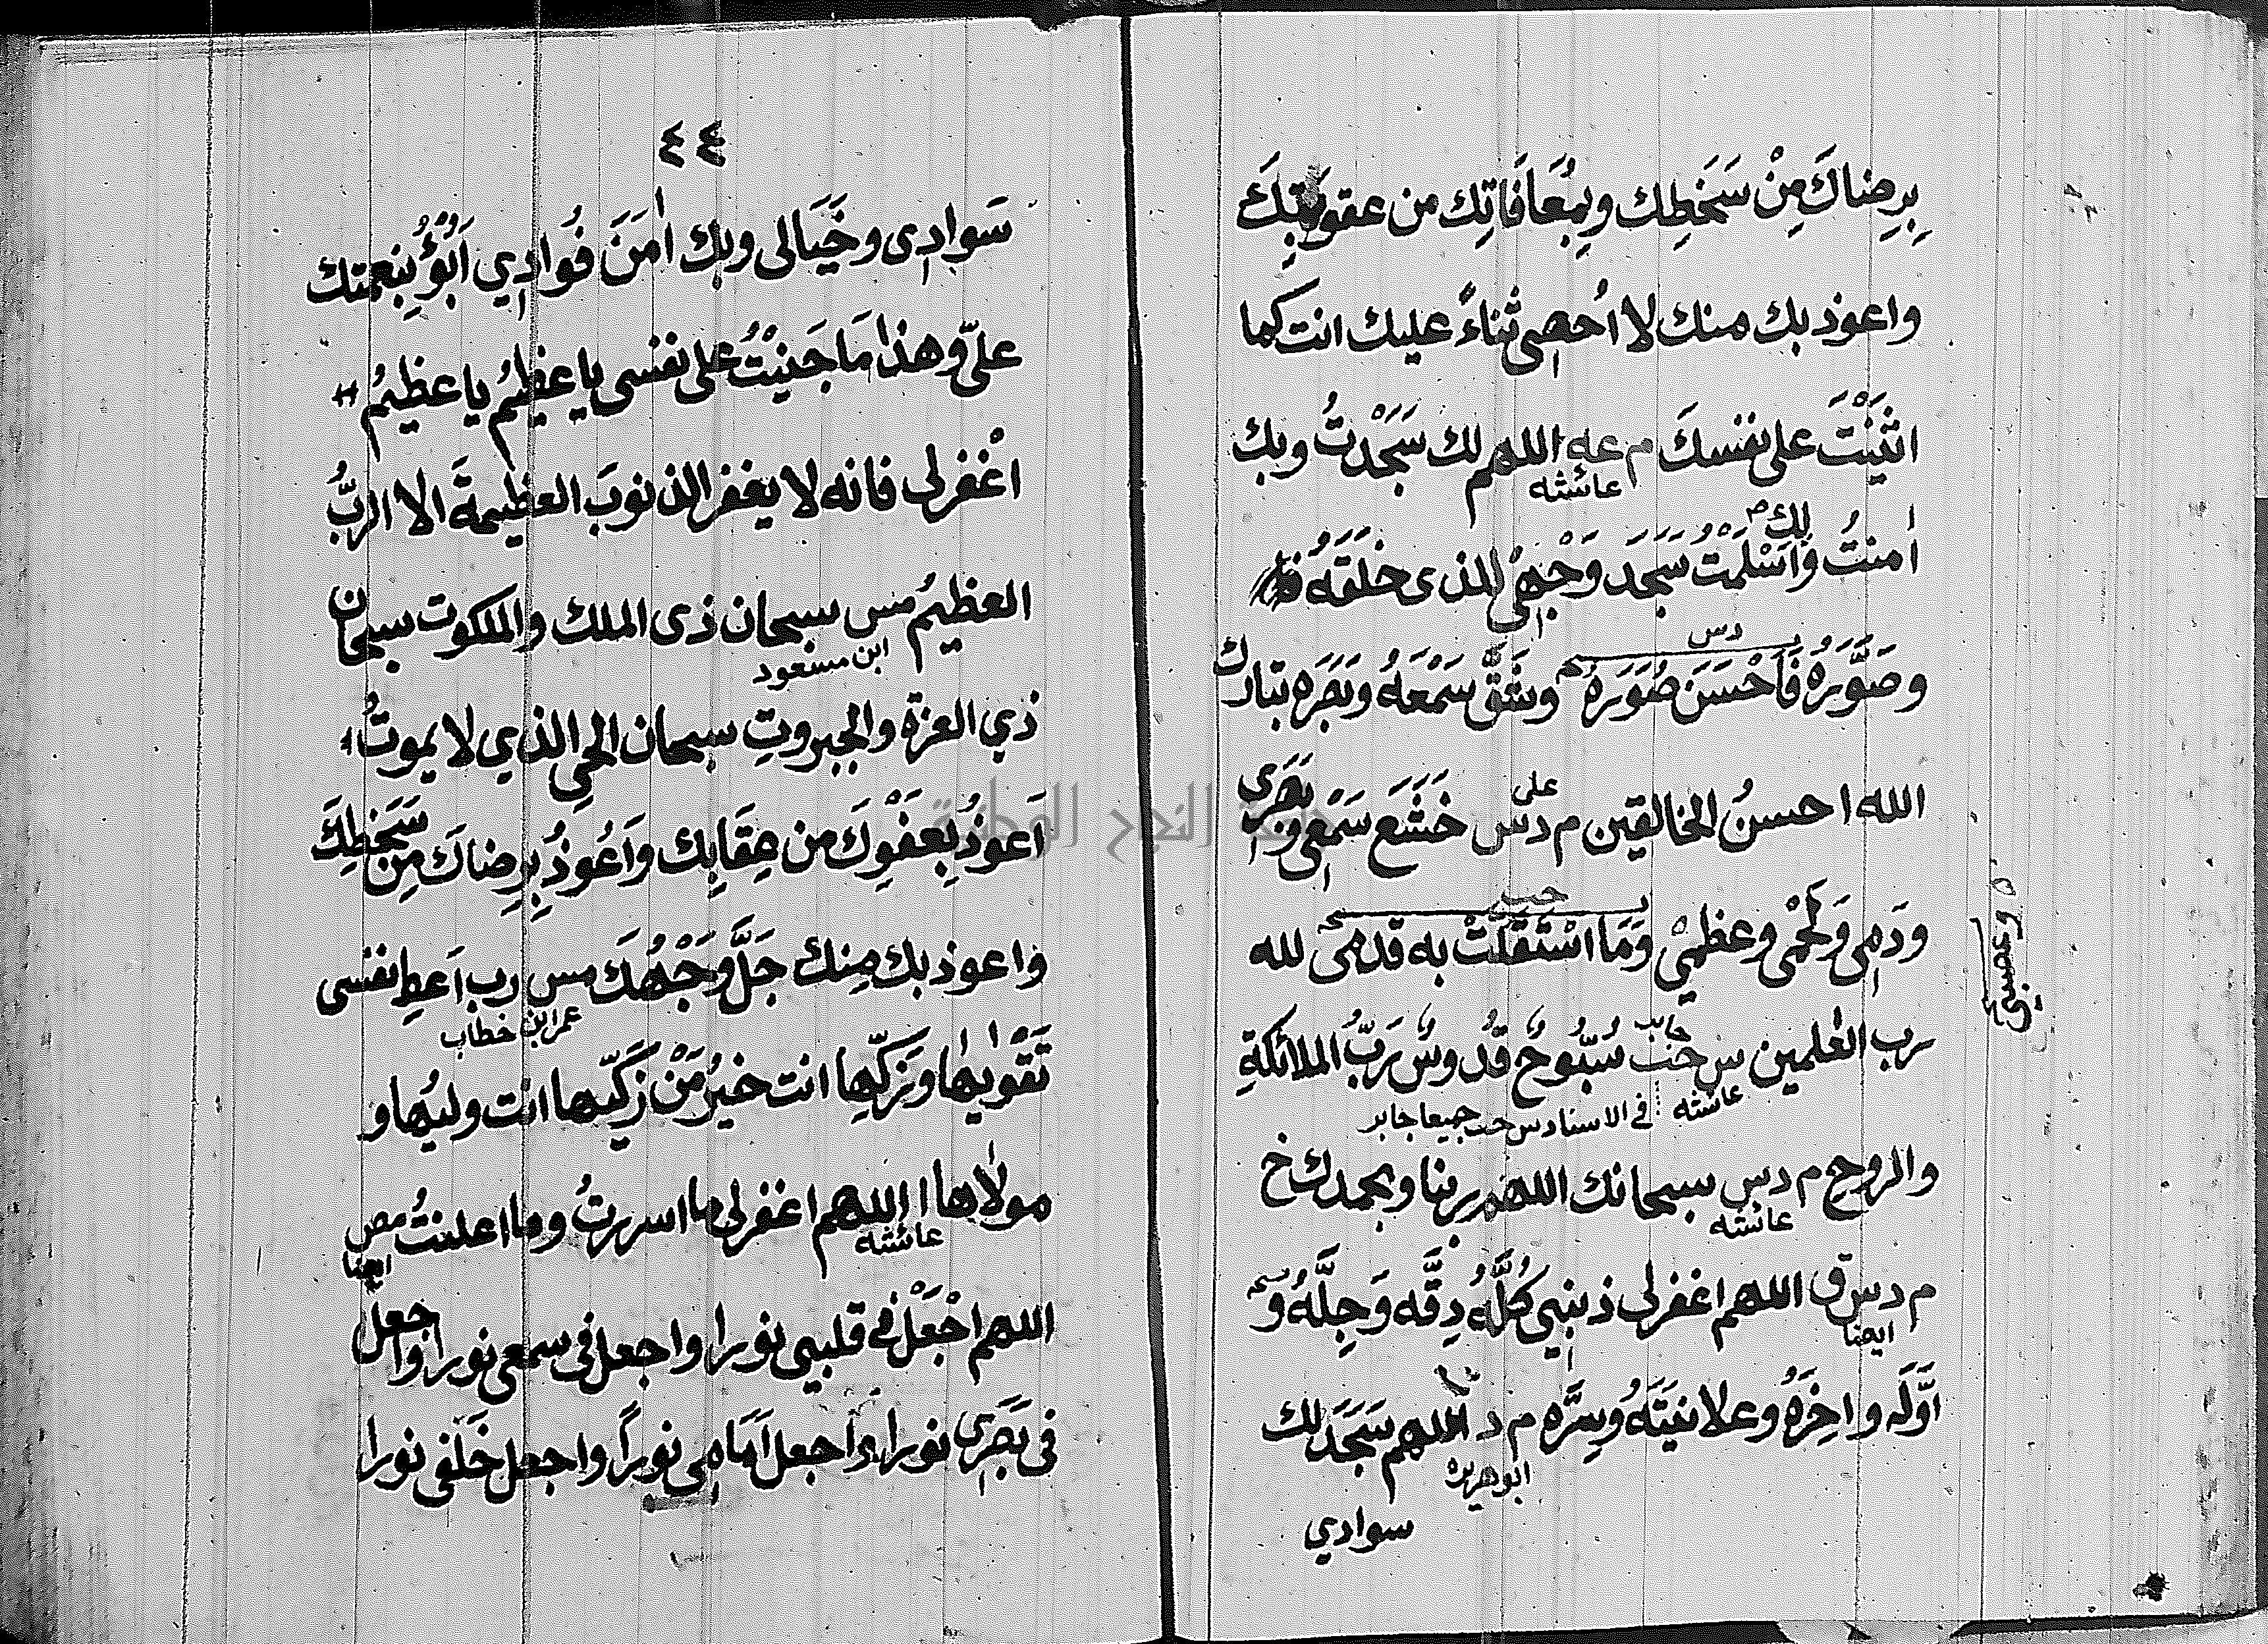 بِرِضاكَ مِنْ سَخَطِك وبِمُعَافَاتِك من عقوبتِكَ
واعوذ بك منك لا اُحصى ثناءً عليك انت كما
اثنَيْتَ على نفسكَ م عه اللهم لك سَجَدْتُ وبك
عائشه
اٰمنتُ وَلك اَسْلَمْتُ سَجَدَ وَجْهِىْ للذى خَلَقَهُ
دس
وصَوَّرَهُ فَاَحْسَنَ صُوَرَهُ وشَقَّ سَمْعَهُ وبَصَرَه تبارك
الله احسنُ الخالقين م دس خَشَعَ سَمْعِى وبَصَرِى
على
ودَمِى ولَحْمِى وعظمِىْ وَمَا اسْتَقَلَّتْ به قدمِى لله
حب
وعصبى
رب العٰلمين س حب سُبُّوحٌ قُدُّوسٌ رَبُّ الملائكةِ
جابر
عائشه فى الاسناد س حب جميعا جابر
والروحِ م دس سبحانك اللهم ربنا وبحمدك خ
عائشه
م دس ق اللهم اغفرلى ذنبِي كُلَّهُ دِقَّه وَجِلَّهُ وَ
ايضا
اَوَّلَه واٰخِرَهُ وعلانيَتَهُ وسِرَّه م د اللهم سَجَدَ لك
ابو هريره
سوادي
٤٤
سَوادِى وخَيَالى وبك اٰمَنَ فُوادِي اَبُوْءُ بِنعمتك
علىّ وهذا مَا جَنَيْتُ على نفسى يا عظيمُ يا عظيمُ
اغْفرلى فانه لا يغفر الذنوبَ العظيمةَ الا الربُّ
العظيمُ مس سبحان ذى الملك والملكوت سبحان
ابن مسعود
ذي العزة والجبروتِ سبحان الحىِ الذي لا يموتُ
اَعوذُ بِعَفْوِكَ من عِقَابِك وَاَعُوذُ بِرِضاكَ مِن سَخَطِكَ
واعوذ بك مِنك جَلَّ وَجْهُكَ مس رب اَعطِ نفسى
عمر ابن خطاب
تَقْوٰيها وزَكِّها انت خيرُ مَنْ زَكّٰيها انت وليُها و
مولاها ا اللهم اغفرلى ما اسررتُ وما اعلنتُ مص
عائشه
ايضا
اللهم اجْعَلْ فى قلبى نورا واجعل فى سمعى نورا واجعل
فى بَصَرِى نورا واجعل اَمَامِى نوراً واجعل خَلفى نورا